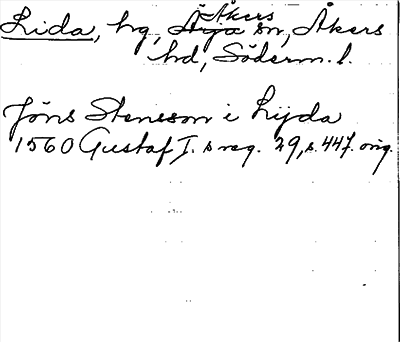 Åkers
Lida, hg, Ärja sn, Åkers
hd, Söderm. l.
Jöns Stensson i Lijda
1560 Gustaf I. s reg. 29, s. 447. orig.